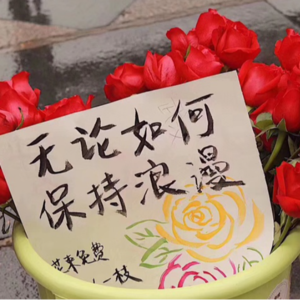 无论如何
保持浪漫
免费
一枝